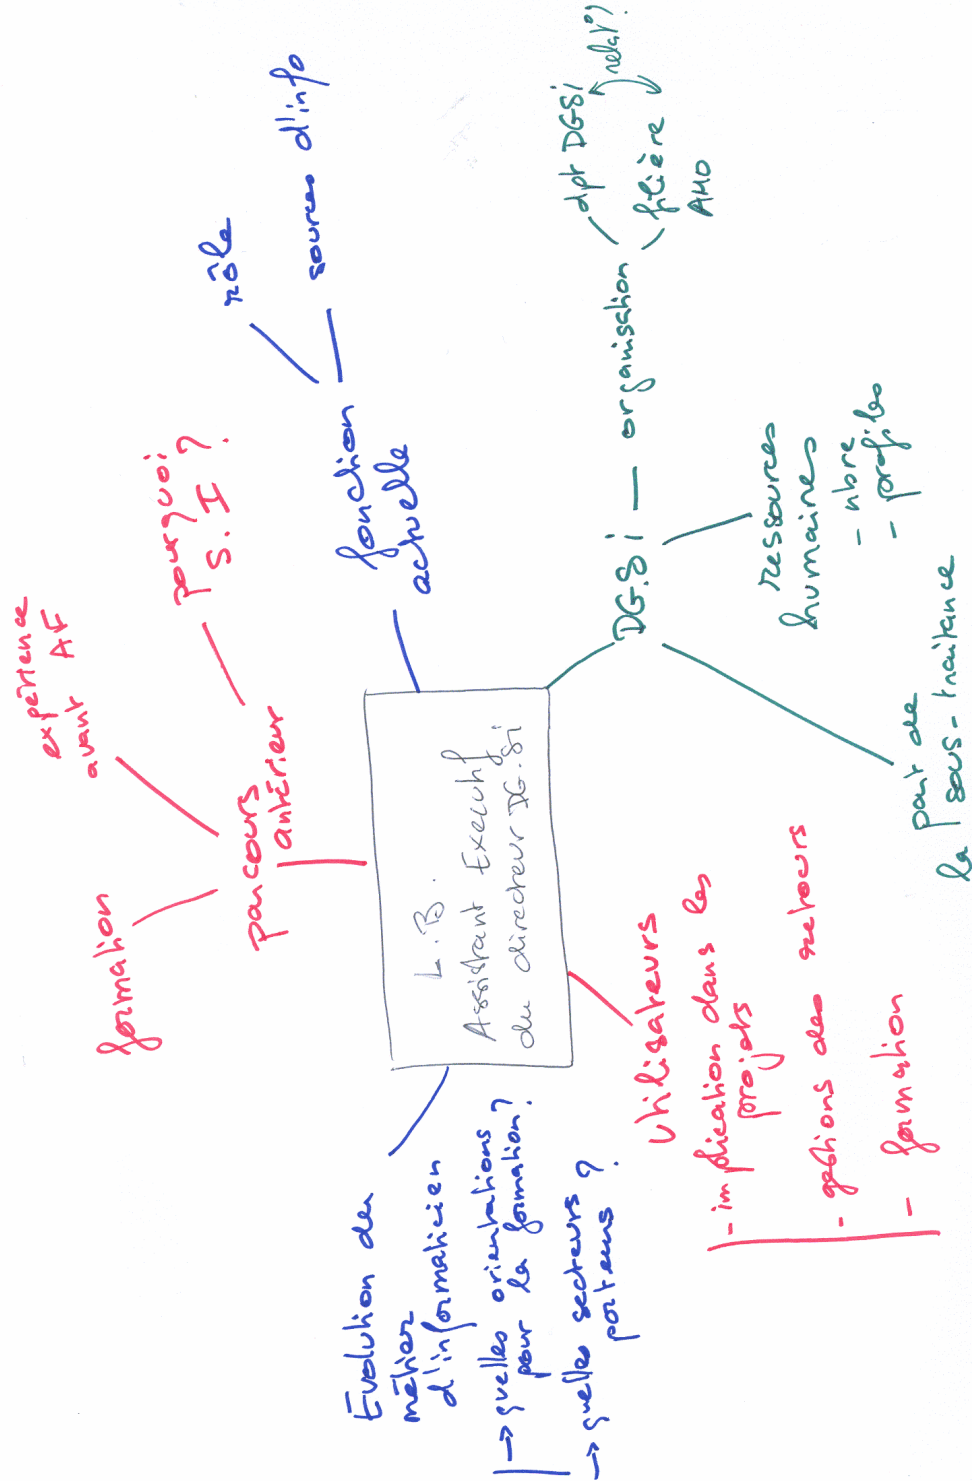 L.B.
Assistant Executif
du directeur DG.Si
parcours
antérieur
formation
expérience
avant AF
pourquoi
S.I ?
fonction
actuelle
rôle
sources d'info
DG.Si
organisation
dpt DGSi
filière
AMO
relat° ?
ressources
humaines
- nbre
- profils
part de
la sous-traitance
utilisateurs
- implication dans les
projets
- gestions des retours
- formation
Evolution du
métier
d'informaticien
→ quelles orientations
pour la formation ?
→ quelles secteurs
porteurs ?